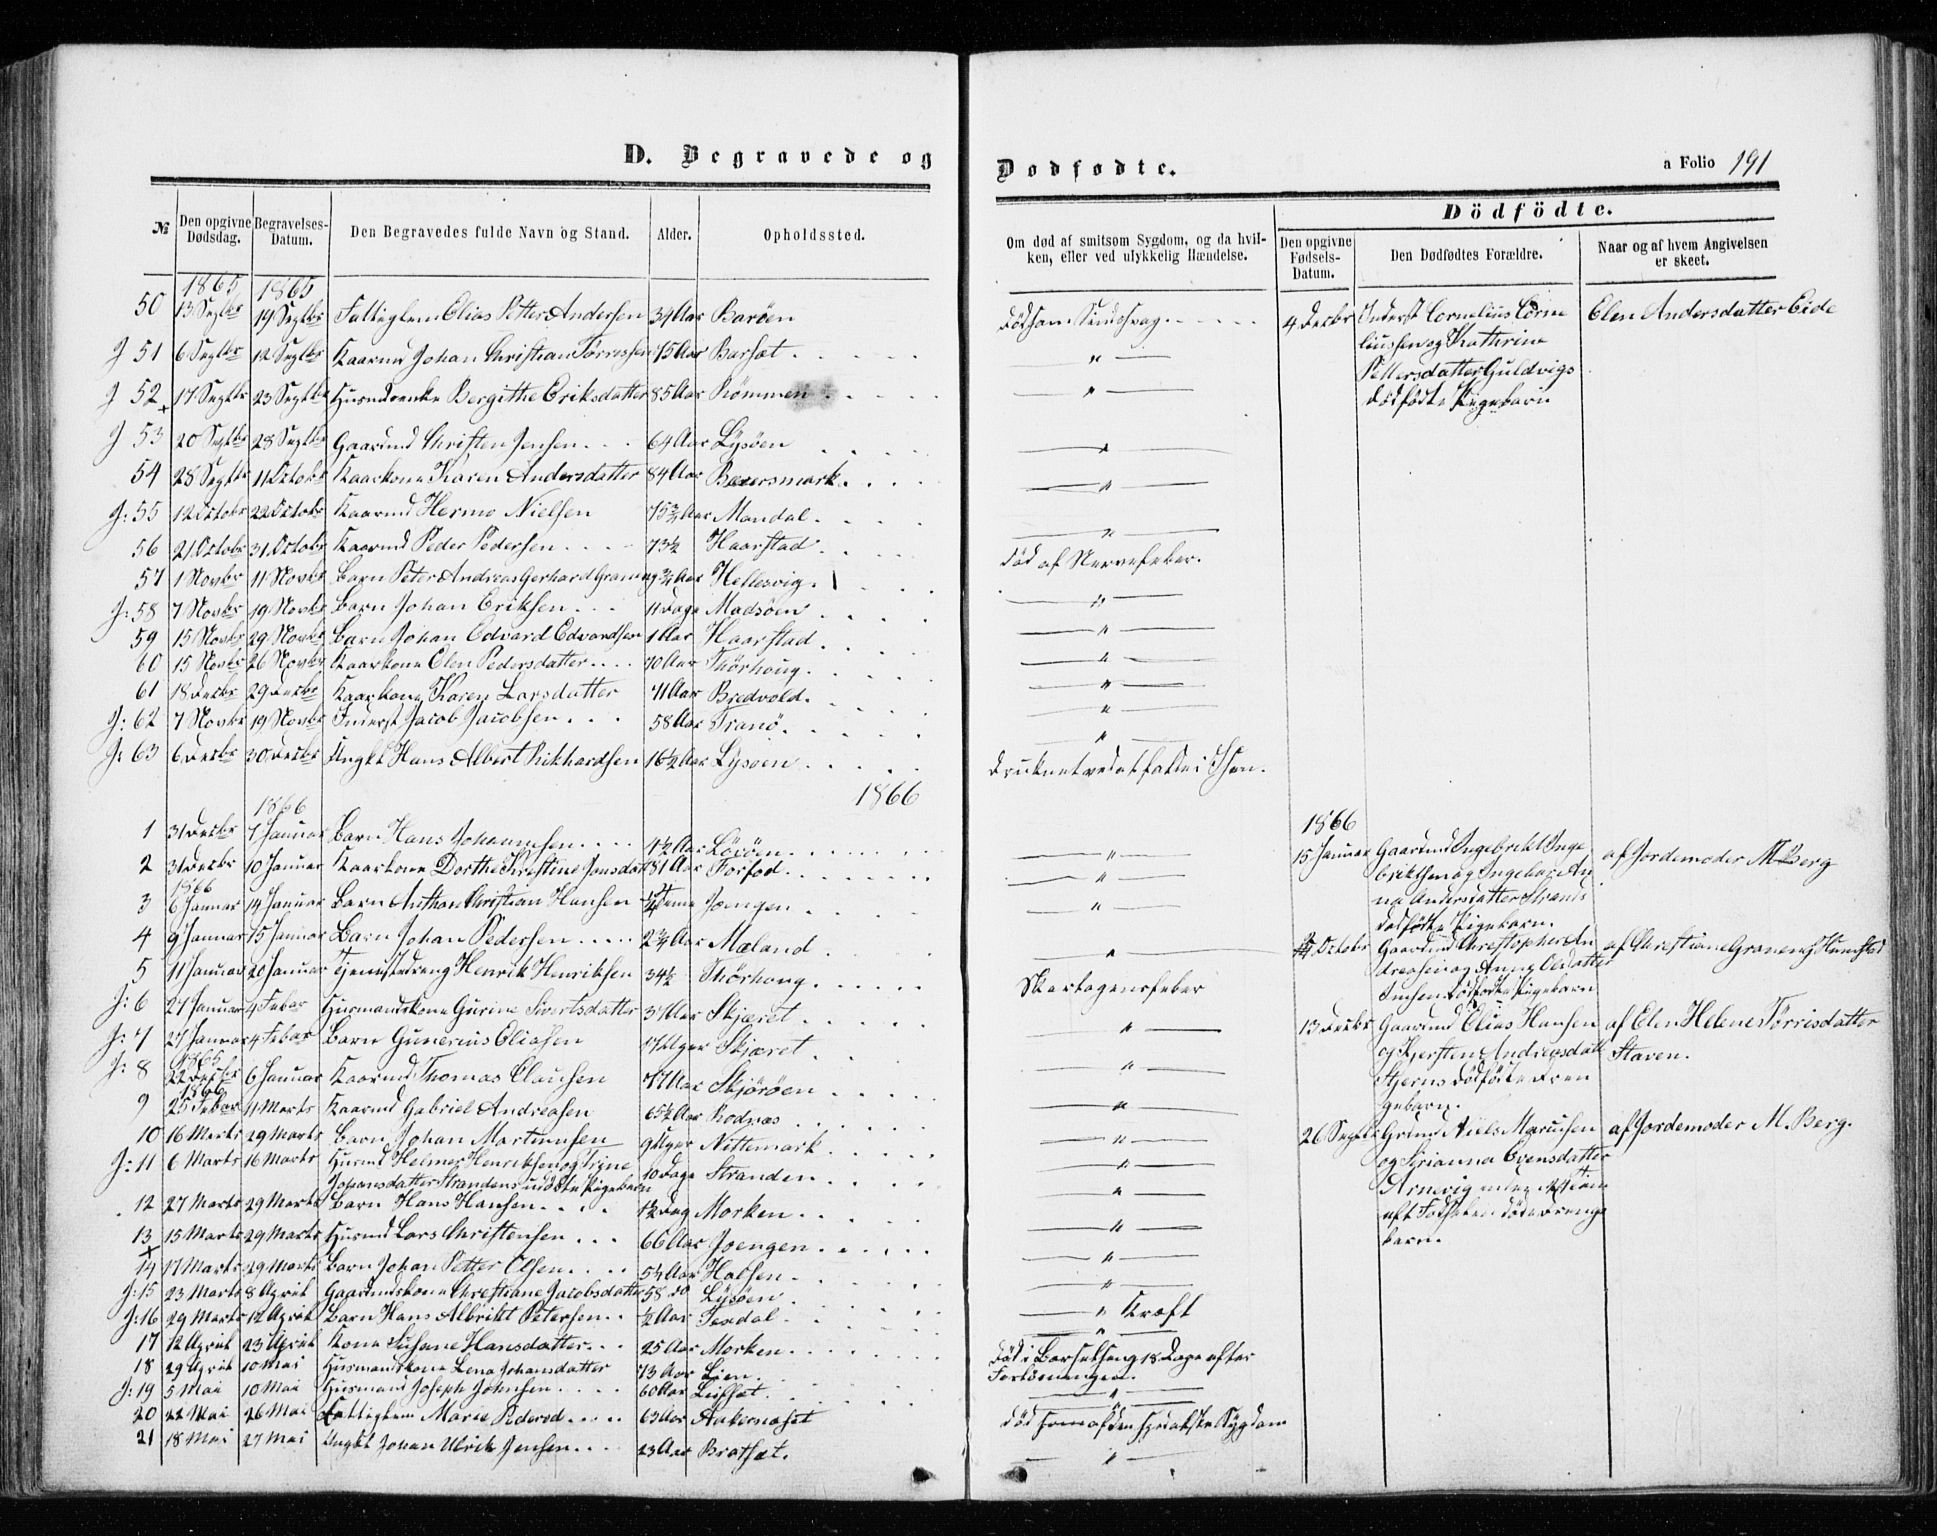 D. Begravede og
Dødfødte.
a Folio 191
№
Den opgivne Dødsdag.
Begravelses-Datum.
Den Begravedes fulde Navn og Stand.
Alder.
Opholdssted.
Om død af smitsom Sygdom, og da hvil-
ken, eller ved ulykkelig Hændelse.
Dödfödte.
Den opgivne Fødsels-Datum.
Den Dødfødtes Forældre.
Naar og af hvem Angivelsen er skeet.
1865 1865
50 13 Septbr 19 Septbr Fattiglem Elias Petter Andersen 39 Aar Barøen
J 51 6 Septbr 12 Septbr Kaarmd Johan Christian Tørresen 75 Aar Barsæt
J 52 17 Septbr 23 Septbr Huusmdenke Bergithe Eriksdatter 85 Aar Rømmen
J 53 20 Septbr 28 Septbr Gaardmd Christen Jensen 64 Aar Lysøen
54 28 Septbr 11 Octobr Kaarkone Karen Andersdatter 84 Aar Bæversmark
J: 55 12 Octobr 22 Octobr Kaarmd Hermo Nielsen 75 Aar Mandal
56 21 Octobr 31 Octobr Kaarmd Peder Pedersen 73½ Haarstad
57 1 Novbr 11 Novbr Barn Peter Andreas Gerhard Graneng Aar Hellesvig
J: 58 7 Novbr 19 Novbr Barn Johan Eriksen 11 Dage Madsøen
59 15 Novbr 29 Novbr Barn Johan Edvard Edvardsen 1 Aar Haarstad
60 15 Novbr 26 Novbr Kaarkone Elen Pedersdatter 70 Aar Thørhoug
61 18 Decbr 29 Decbr Kaarkone Karen Larsdatter 71 Aar Bredvold
J: 62 7 Novbr 19 Novbr Inderst Jacob Jacobsen 58 Aar Tranø
J: 63 6 Decbr 30 Decbr Ungkl Hans Albert Rikhardsen 16½ Aar Lysøen
1866
1866
1 31 Decbr 7 Januar Barn Hans Johannsen Aar Löröen
2 31 Decbr 10 Januar Kaarkone Dorthe Kristine Jonsdat 81 Aar Forfod
1866
3 6 Januar 14 Januar Barn Anthon Christian Hansen ¼ Time Joengen
4 9 Januar 15 Januar Barn Johan Pedersen Aar Mæland
5 11 Januar 20 Januar Tjenestedreng Henrik Henriksen 34½ Thørhoug
J: 6 27 Januar 4 Febar Husmandskone Gurine Sivertsdatter 37 Aar Skjæret
J: 7 27 Januar 4 Febar Barn Gunerius Eliasen 17 Uger Skjæret
1865
J: 8 22 Decbr 6 Januar Kaarmd Thomas Clausen 77 Aar Skjörøen
1866
9 25 Febar 11 Marts Kaarmd Gabriel Andreasen 65½ Aar Rodnæs
10 16 Marts 29 Marts Barn Johan Martinusen 9 Uger Nittemark
J: 11 6 Marts 16 Marts Husmd Helmer Henriksen og Trine
Johansdatter Strandens udöbte Pigebarn 10 Dage Stranden
12 27 Marts 29 Marts Barn Hans Hansen 1½ Dag Morken
13 15 Marts 29 Marts Husmd Lars Christensen 66 Aar Joengen
14 17 Marts 29 Marts Barn Johan Petter Olsen Aar Halsen
J: 15 23 Marts 8 April Gaardmdskone Christiane Jacobsdatter 58 do Lysøen
J: 16 29 Marts 12 April Barn Hans Albrikt Petersen ½ Aar Texdal
17 12 April 23 April Kone Susane Hansdatter 25 Aar Morken
18 29 April 10 Mai Husmandskone Lena Johansdatter 73 Aar Lien
J: 19 5 Mai 10 Mai Husmand Joseph Johnsen 60 Aar Lussæt
20 22 Mai 26 Mai Fattiglem Marie Pedersd 63 Aar Aakernæset
21 18 Mai 27 Mai Ungkl Johan Ulrik Jensen 23 Aar Bratsæt.
død som Sindssvag
død af Nervefeber.
druknet ved at falde i Søen.
Skarlagensfeber
Kræft
død i Barselseng 18 Dage efter
Forløsningen
død som af den spedalske Sygdom
4 Decbr Inderst Cornelius Corne
liussen og Kathrine
Pettersdatter Guldvigs
dødfødte Pigebarn
Elen Andersdatter Eide
1866
15 Januar Gaardmd Ingebrikt Inge
briktsen og Ingebor An
na Andersdatter Strands
dødfødte Pigebarn.
af Jordemoder M Berg
Octobr Gaardmd Christopher An
dreasen og Anne Olsdatter
dødfødte Pigebarn
af Christiane Graneng
13 Decbr Gaardmd Elias Hansen
og Kjersten Andreasdatt
Stjerns dødfødte Dren
gebarn.
af Elen Helene Tørrisdatter
Staven.
26 Septbr Grdmd Niels Mariusen
og Arianna Evensdatter
Arnevig
eft Fødselen døde Drenge
barn.
af Jordemoder M. Berg.